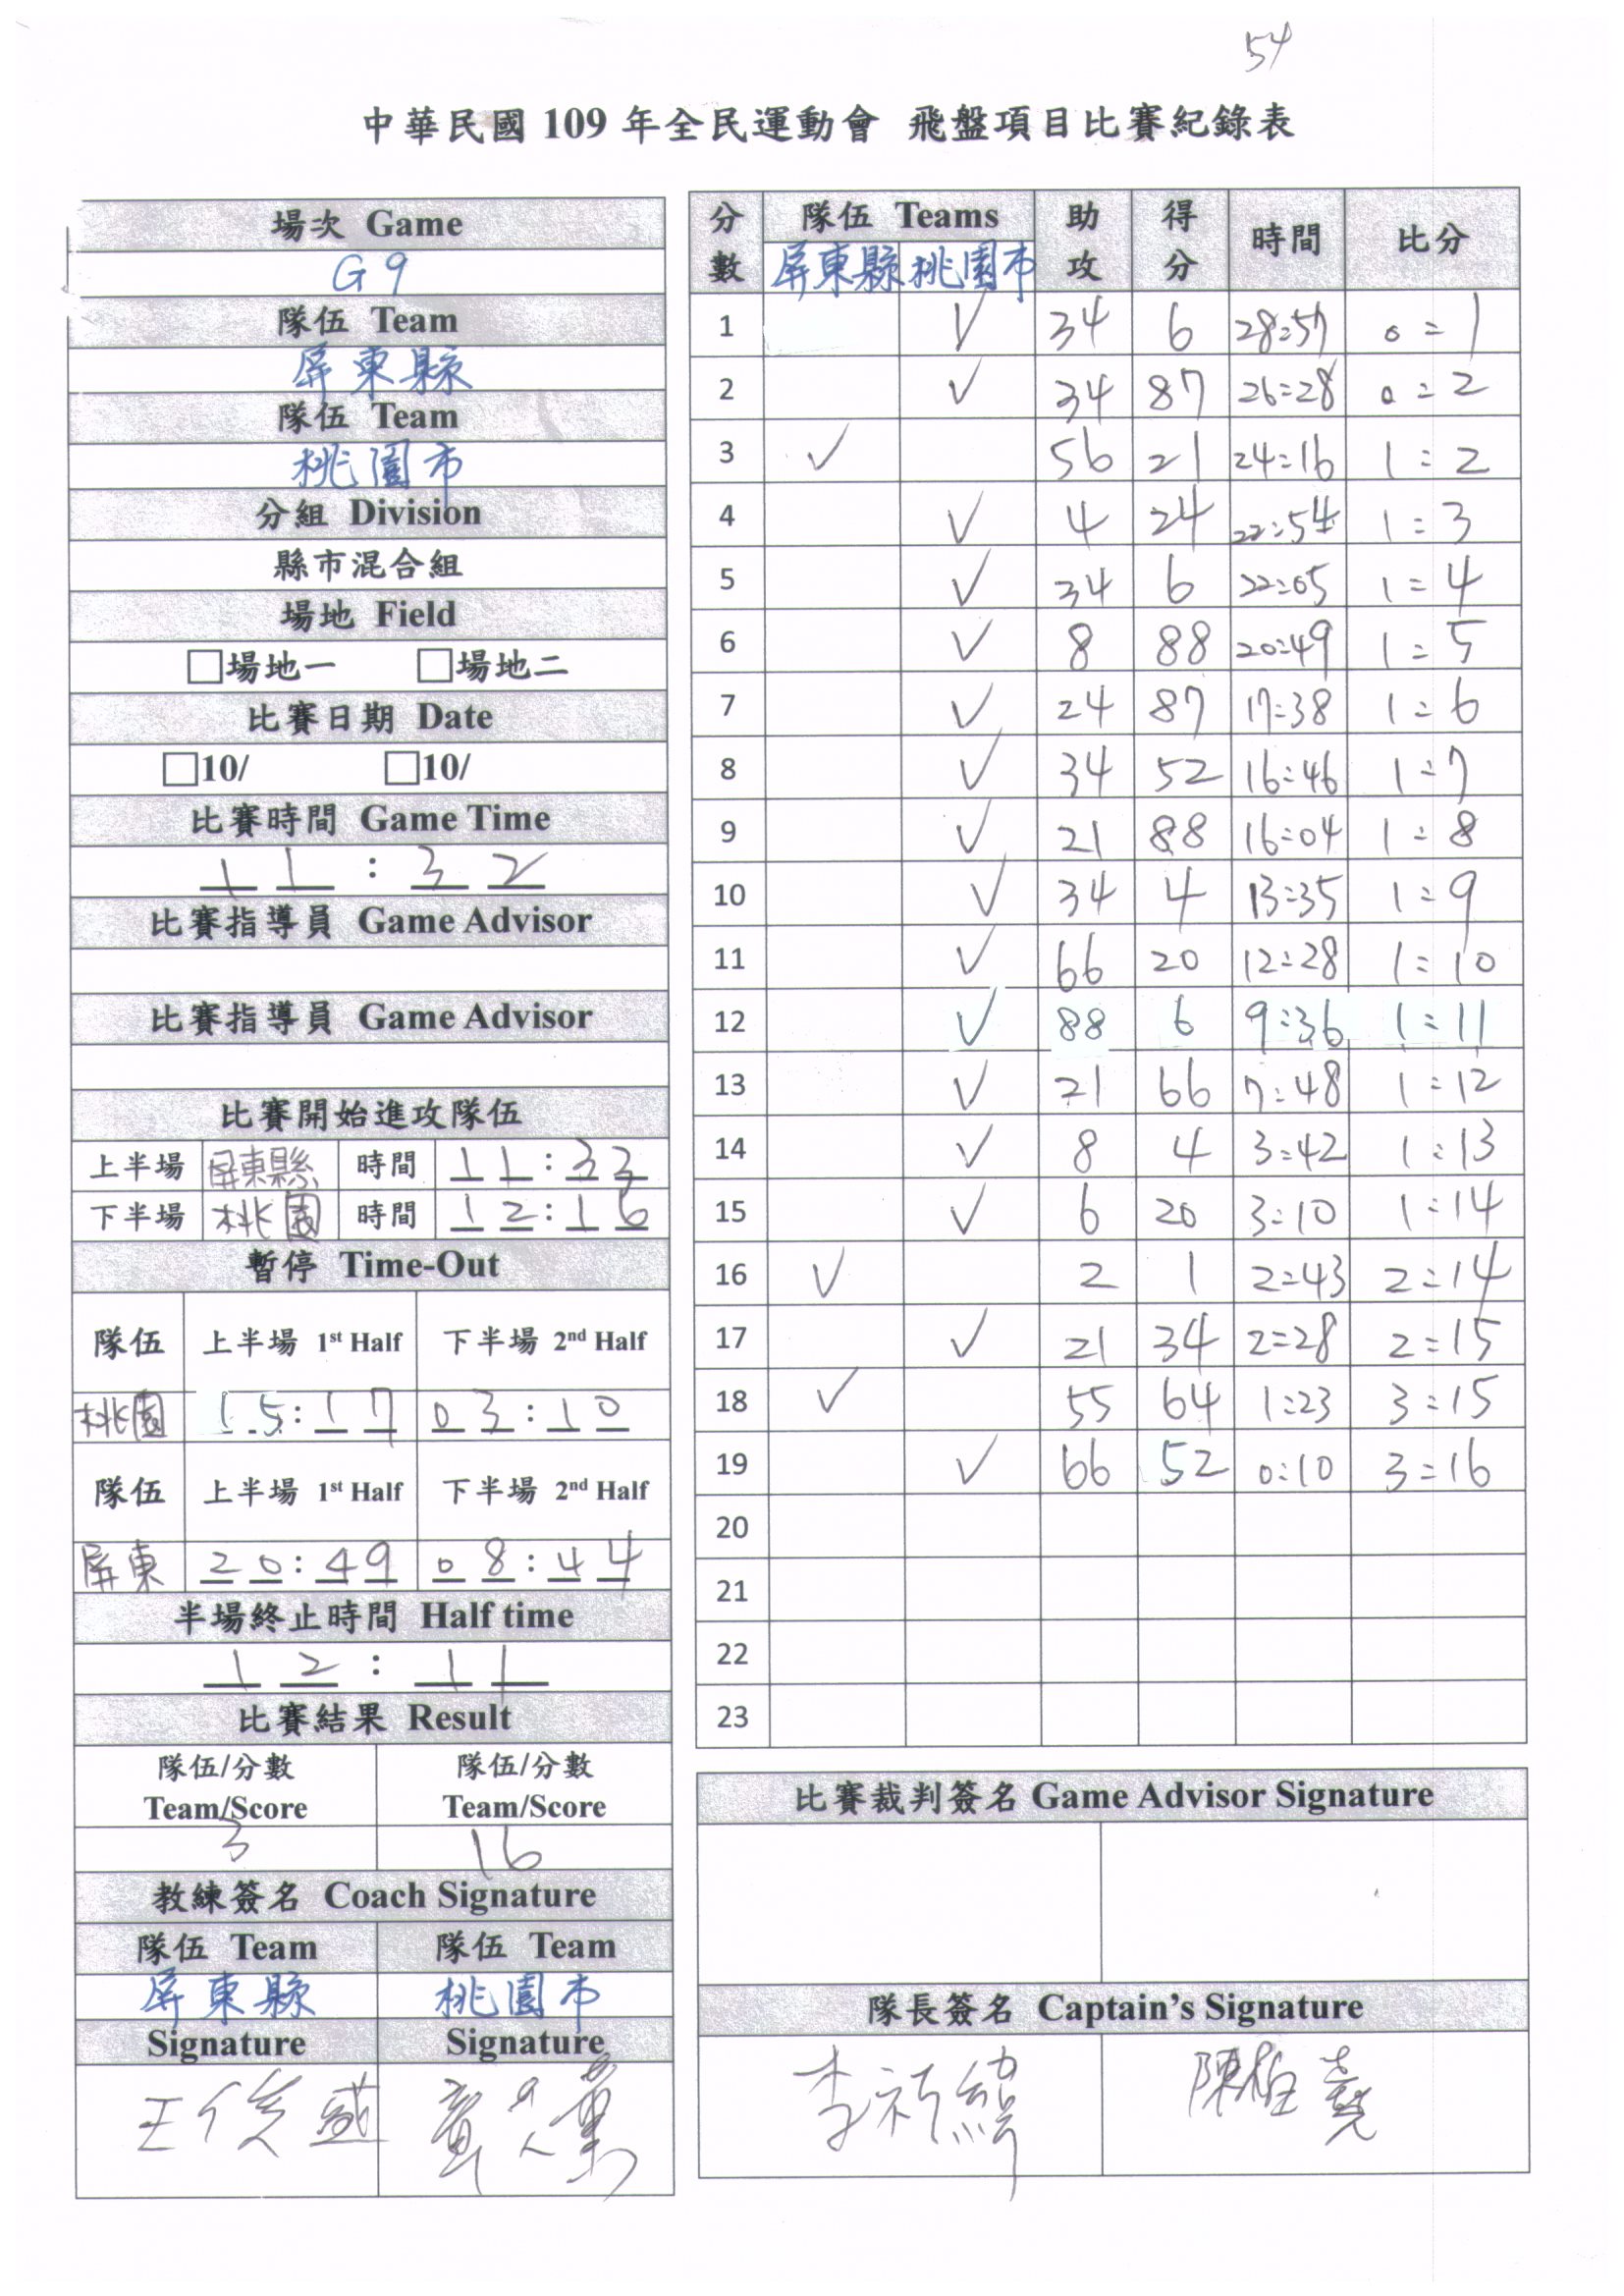 54
中華民國 109 年全民運動會 飛盤項目比賽紀錄表
場次 Game
G9
隊伍 Team
屏東縣
隊伍 Team
桃園市
分組 Division
縣市混合組
場地 Field
□場地一 □場地二
比賽日期 Date
□10/ □10/
比賽時間 Game Time
11:32
比賽指導員 Game Advisor
比賽指導員 Game Advisor
比賽開始進攻隊伍
上半場 屏東縣 時間 11:33
下半場 桃園 時間 12:16
暫停 Time-Out
隊伍 上半場 1st Half 下半場 2nd Half
桃園 15:17 03:10
隊伍 上半場 1st Half 下半場 2nd Half
屏東 20:49 08:44
半場終止時間 Half time
12:11
比賽結果 Result
隊伍/分數 隊伍/分數
Team/Score Team/Score
3 16
教練簽名 Coach Signature
隊伍 Team 隊伍 Team
屏東縣 桃園市
Signature Signature
王俊盛
分數 隊伍 Teams 助攻 得分 時間 比分
屏東縣 桃園市
1 ✓ 34 6 28:57 0:1
2 ✓ 34 87 26:28 0:2
3 ✓ 56 21 24:16 1:2
4 ✓ 4 24 22:54 1:3
5 ✓ 34 6 22:05 1:4
6 ✓ 8 88 20:49 1:5
7 ✓ 24 87 17:38 1:6
8 ✓ 34 52 16:46 1:7
9 ✓ 21 88 16:04 1:8
10 ✓ 34 4 13:35 1:9
11 ✓ 66 20 12:28 1:10
12 ✓ 88 6 9:36 1:11
13 ✓ 21 66 7:48 1:12
14 ✓ 8 4 3:42 1:13
15 ✓ 6 20 3:10 1:14
16 ✓ 2 1 2:43 2:14
17 ✓ 21 34 2:28 2:15
18 ✓ 55 64 1:23 3:15
19 ✓ 66 52 0:10 3:16
20
21
22
23
比賽裁判簽名 Game Advisor Signature
隊長簽名 Captain's Signature